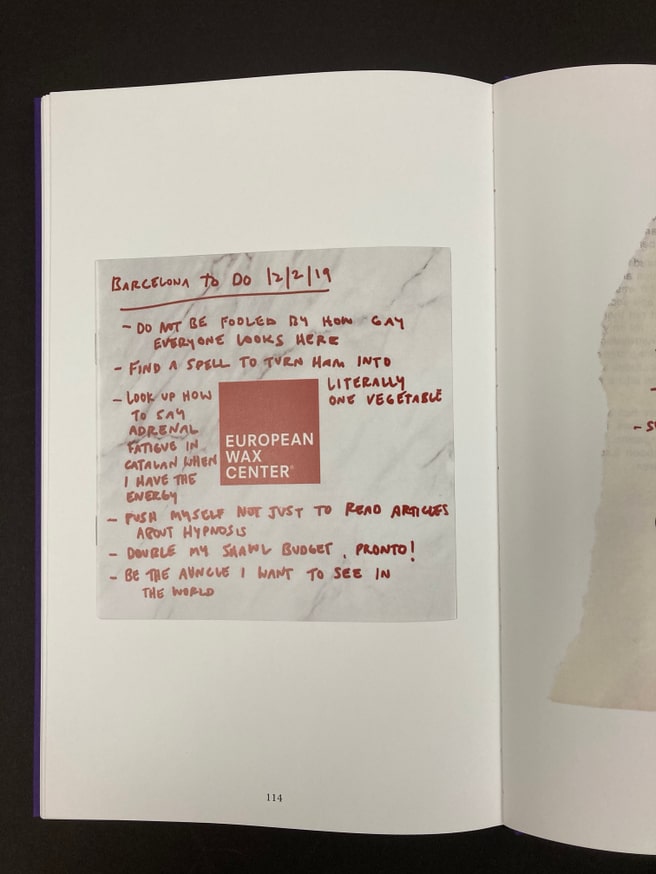 BARCELONA TO DO 12/2/19
- DO NOT BE FOOLED BY HOW GAY
EVERYONE LOOKS HERE
- FIND A SPELL TO TURN HAM INTO
LITERALLY
ONE VEGETABLE
- LOOK UP HOW
TO SAY
ADRENAL
FATIGUE IN
CATALAN WHEN
I HAVE THE
ENERGY
EUROPEAN
WAX
CENTER®
- PUSH MYSELF NOT JUST TO READ ARTICLES
ABOUT HYPNOSIS
- DOUBLE MY SHAWL BUDGET, PRONTO!
- BE THE AUNCLE I WANT TO SEE IN
THE WORLD
114